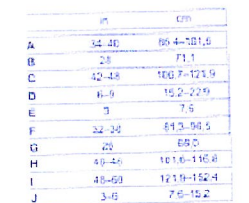 in cm
A 34-40 86.4-101,6
B 28 71,1
C 42-48 106,7-121,9
D 6-9 15,2-22,9
E 3 7,6
F 32-38 81,3-96,5
G 26 66,0
H 40-46 101,6-116,8
I 48-60 121,9-152,4
J 3-6 7,6-15,2